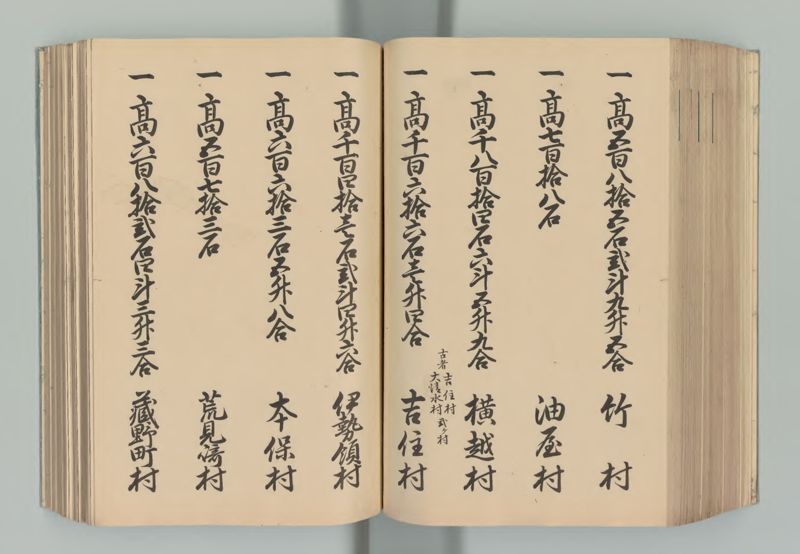 一 高五百八拾五石弐斗九升五合 竹村
一 高七百拾八石 油屋村
一 高千八百拾四石六斗五升九合 横越村
古者 吉住村 大清水村 弐ヶ村
一 高千百六拾六石壱升四合 吉住村
一 高千百四拾壱石弐斗四升六合 伊勢領村
一 高六百六拾三石五升八合 本保村
一 高五百七拾三石 荒見崎村
一 高六百八拾弐石四斗三升三合 蔵野町村